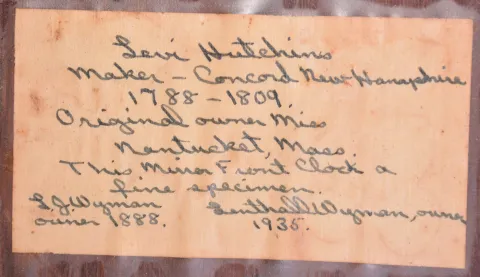 Levi Hutchins
Maker - Concord New Hampshire
1788 - 1809.
Original owner Miss
Nantucket, Mass.
This Mirror Front Clock a
fine specimen.
L J Wyman
owner 1888.
Lenthall Wyman, owner
1935.